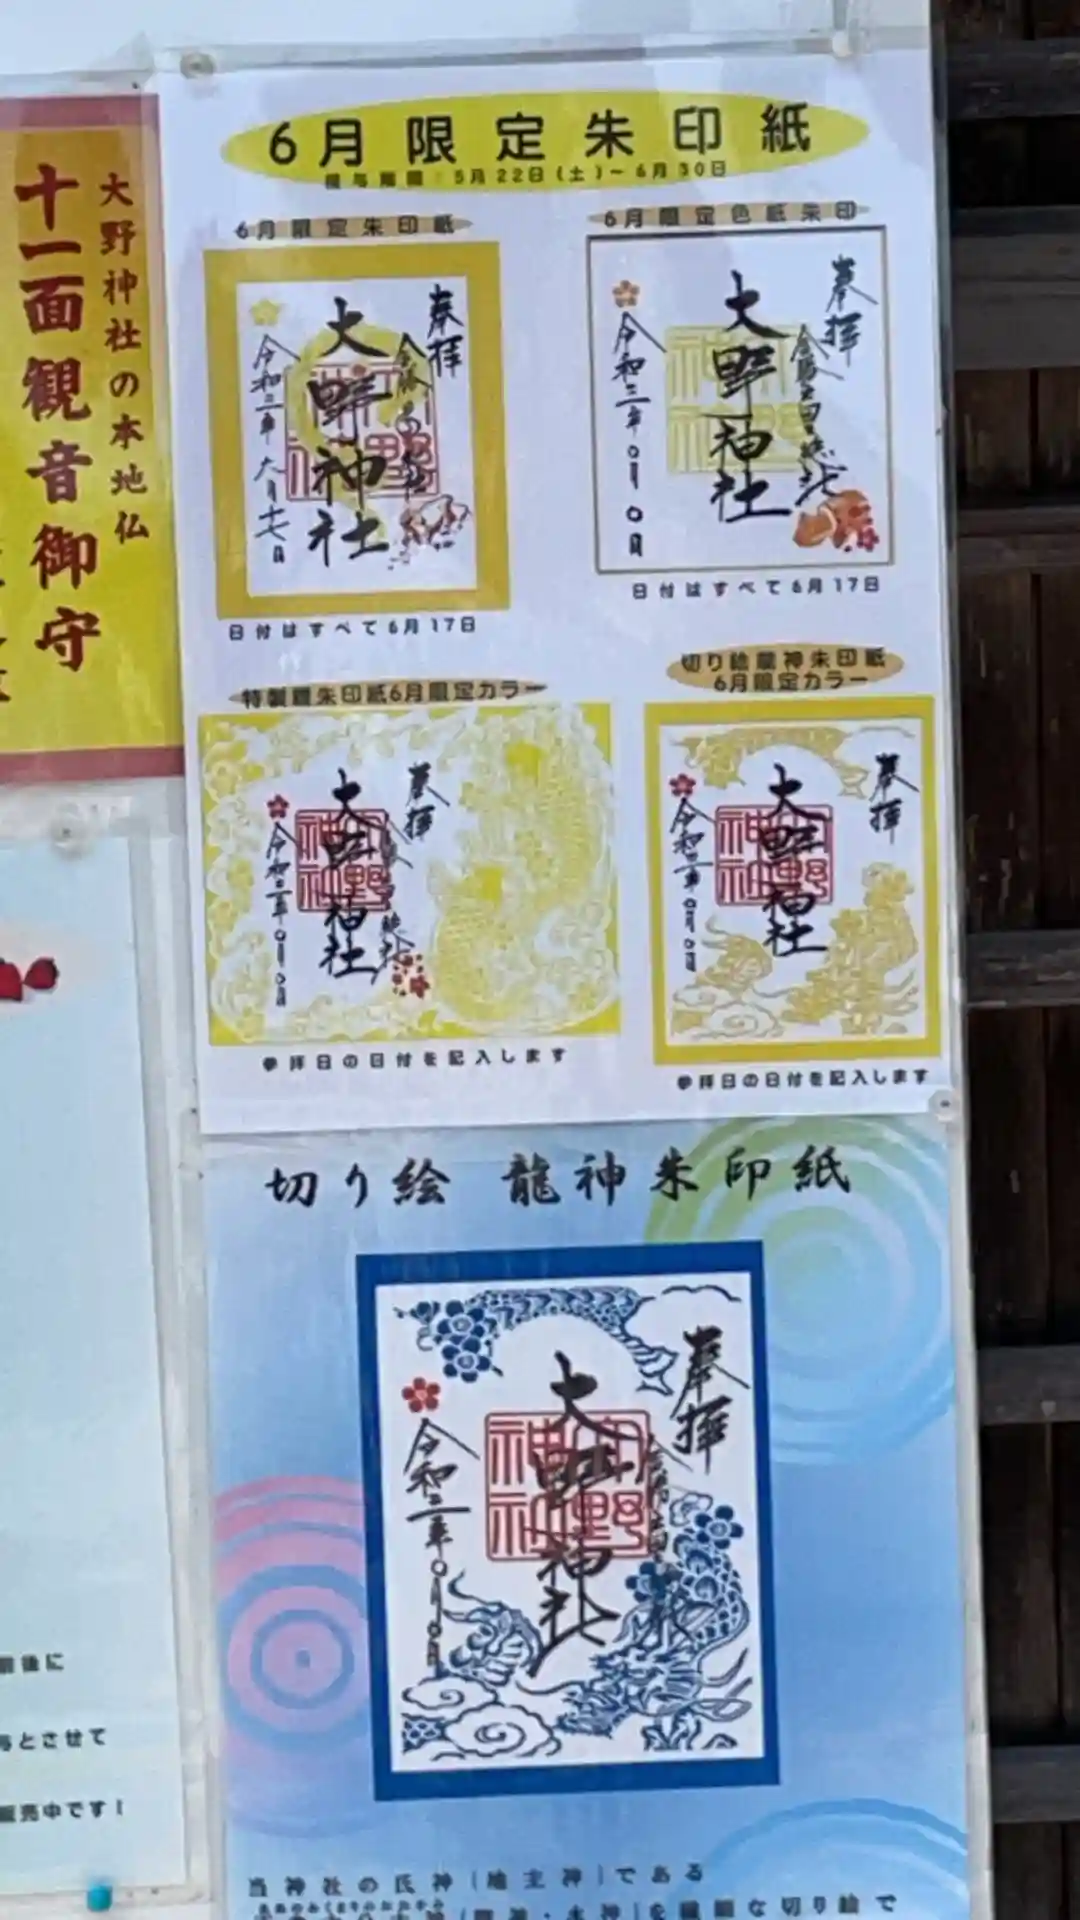 6月限定朱印紙
授与期間：5月22日(土)～6月30日
6月限定朱印紙
奉拝
大野神社
令和三年 六月十七日
日付はすべて6月17日
6月限定色紙朱印
奉拝
大野神社
令和三年〇月〇日
日付はすべて6月17日
特製龍朱印紙6月限定カラー
奉拝
大野神社
令和三年〇月〇日
参拝日の日付を記入します
切り絵龍神朱印紙
6月限定カラー
奉拝
大野神社
令和三年〇月〇日
参拝日の日付を記入します
大野神社の本地仏
十一面観音御守
切り絵 龍神朱印紙
奉拝
大野神社
令和三年〇月〇日
当神社の氏神(地主神)である
を繊細な切り絵で
前後に
とさせて
販売中です！